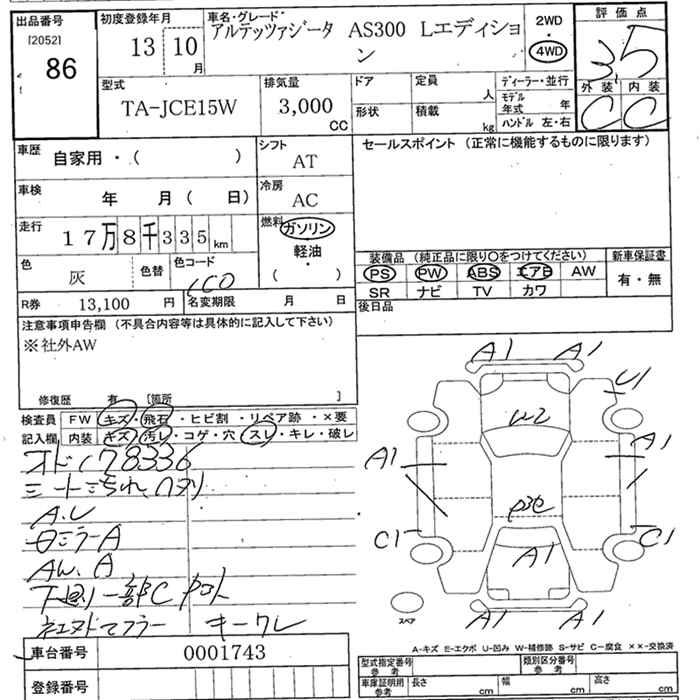 出品番号
[2052]
86
初度登録年月
13 10
月
車名・グレード
アルテッツァジータ AS300 Lエディション
2WD
・
4WD
評価点
3.5
外装 内装
C C
型式
TA-JCE15W
排気量
3,000
CC
ドア
定員
人
形状
積載
kg
ディーラー・並行
モデル年式 年
ハンドル 左・右
車歴
自家用・( )
シフト
AT
セールスポイント (正常に機能するものに限ります)
車検
年 月( 日)
冷房
AC
走行
17万8千335km
燃料
ガソリン
軽油
・
( )
色
灰
色替
色コード
1C0
装備品 (純正品に限り○をつけてください)
新車保証書
PS PW ABS エアB AW
有・無
SR ナビ TV カワ
R券 13,100 円
名変期限 月 日
後日品
注意事項申告欄 (不具合内容等は具体的に記入して下さい)
※社外AW
修復歴 有 [箇所 ]
検査員 FW キズ・飛石・ヒビ割・リペア跡・×要
記入欄 内装 キズ・汚レ・コゲ・穴・スレ・キレ・破レ
オド178336
シートこすれ、ヘタリ
A.U
ロミラーA
AW.A
下廻り一部C
マフラー キーワレ
A1 A1
U1
W2
A1
A1
C1
C1
A1
A1 A1
スペア
A-キズ E-エクボ U-凹み W-補修跡 S-サビ C-腐食 ××-交換済
車台番号 0001743
登録番号
型式指定番号
参考
類別区分番号
参考
車庫証明用
参考
長さ cm
幅 cm
高さ cm